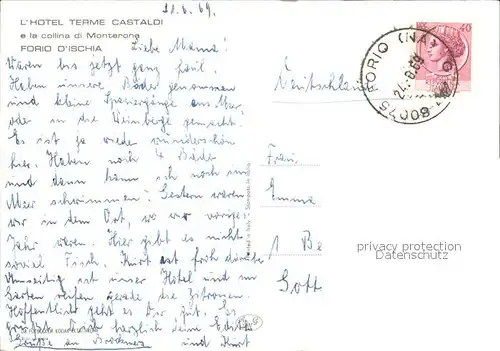 21.6.69.
L'HOTEL TERME CASTALDI
e la collina di Monterone
FORIO D'ISCHIA
Liebe Mama!
Waren bis jetzt ganz faul.
Haben unsere Bäder genommen
und kleine Spaziergänge ans Meer,
oder in die Weinberge gemacht.
Es ist ja wieder wunderschön
hier. Haben noch 4 Bäder
und dann kann ich noch im
Meer schwimmen. Gestern waren
wir in dem Ort, wo wir voriges
Jahr waren. Hier gibt es nicht
soviel Fisch. Kurt ist froh darüber
ist unser Hotel und im
Garten reifen gerade die Zitronen.
Hoffentlich geht es Dir gut. Es
grüßt Dich herzlich deine Edith
Grüße an und Kurt
Deutschland
Frau
Emma
1 Be
Gott
80075 FORIO (NA)
24.6.69
40
privacy protection
watermark